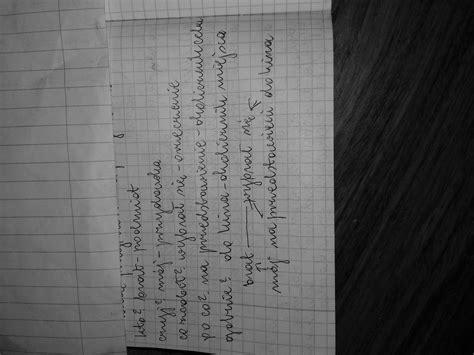 kto? brat - podmiot
czyj? mój - przydawka
co zrobił? wybrał się - orzeczenie
po co? na przedstawienie - okolicznik celu
gdzie? do kina - okolicznik miejsca
brat wybrał się
mój na przedstawienie do kina